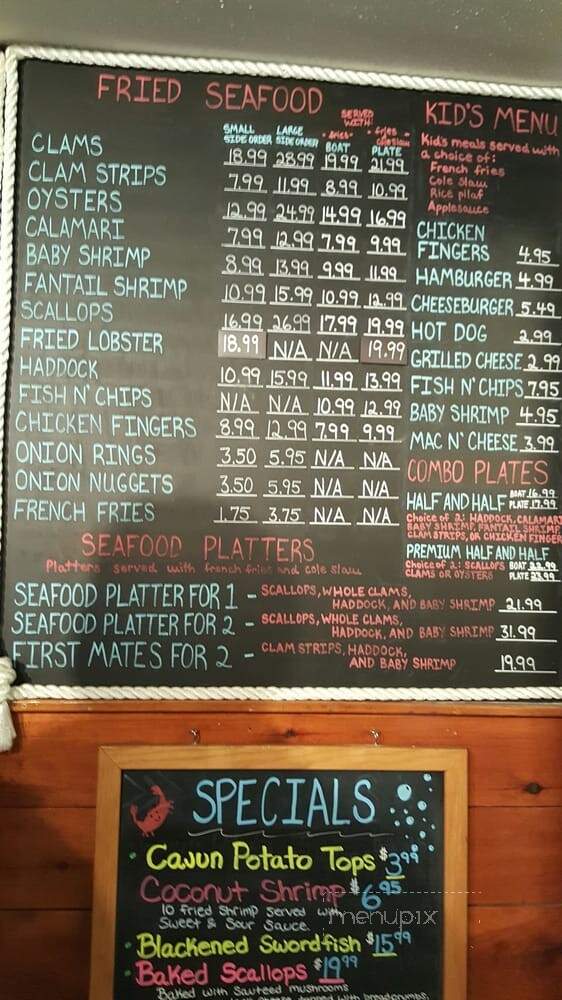 FRIED SEAFOOD
SERVED WITH:
SMALL SIDE ORDER LARGE SIDE ORDER fries BOAT fries coleslaw PLATE
CLAMS 18.99 28.99 19.99 21.99
CLAM STRIPS 7.99 11.99 8.99 10.99
OYSTERS 12.99 24.99 14.99 16.99
CALAMARI 7.99 12.99 7.99 9.99
BABY SHRIMP 8.99 13.99 9.99 11.99
FANTAIL SHRIMP 10.99 15.99 10.99 12.99
SCALLOPS 16.99 26.99 17.99 19.99
FRIED LOBSTER 18.99 N/A N/A 19.99
HADDOCK 10.99 15.99 11.99 13.99
FISH N' CHIPS N/A N/A 10.99 12.99
CHICKEN FINGERS 8.99 12.99 7.99 9.99
ONION RINGS 3.50 5.95 N/A N/A
ONION NUGGETS 3.50 5.95 N/A N/A
FRENCH FRIES 1.75 3.75 N/A N/A
SEAFOOD PLATTERS
Platters served with french fries and cole slaw
SEAFOOD PLATTER FOR 1 - SCALLOPS, WHOLE CLAMS,
HADDOCK, AND BABY SHRIMP 21.99
SEAFOOD PLATTER FOR 2 - SCALLOPS, WHOLE CLAMS,
HADDOCK, AND BABY SHRIMP 31.99
FIRST MATES FOR 2 - CLAM STRIPS, HADDOCK,
AND BABY SHRIMP 19.99
KID'S MENU
Kid's meals served with
a choice of:
French fries
Cole Slaw
Rice pilaf
Applesauce
CHICKEN
FINGERS 4.95
HAMBURGER 4.99
CHEESEBURGER 5.49
HOT DOG 2.99
GRILLED CHEESE 2.99
FISH N' CHIPS 7.95
BABY SHRIMP 4.95
MAC N' CHEESE 3.99
COMBO PLATES
HALF AND HALF BOAT 16.99
PLATE 17.99
Choice of 2: HADDOCK, CALAMARI
BABY SHRIMP, FANTAIL SHRIMP,
CLAM STRIPS, OR CHICKEN FINGER
PREMIUM HALF AND HALF
Choice of 2: SCALLOPS BOAT 22.99
CLAMS OR OYSTERS PLATE 23.99
SPECIALS
• Cajun Potato Tops $3.99
Coconut Shrimp $6.95
10 fried Shrimp Served with
Sweet & Sour Sauce
• Blackened Swordfish $15.99
• Baked Scallops $19.99
Baked with Sauteed mushrooms
cheese topped with breadcrumbs
menupix